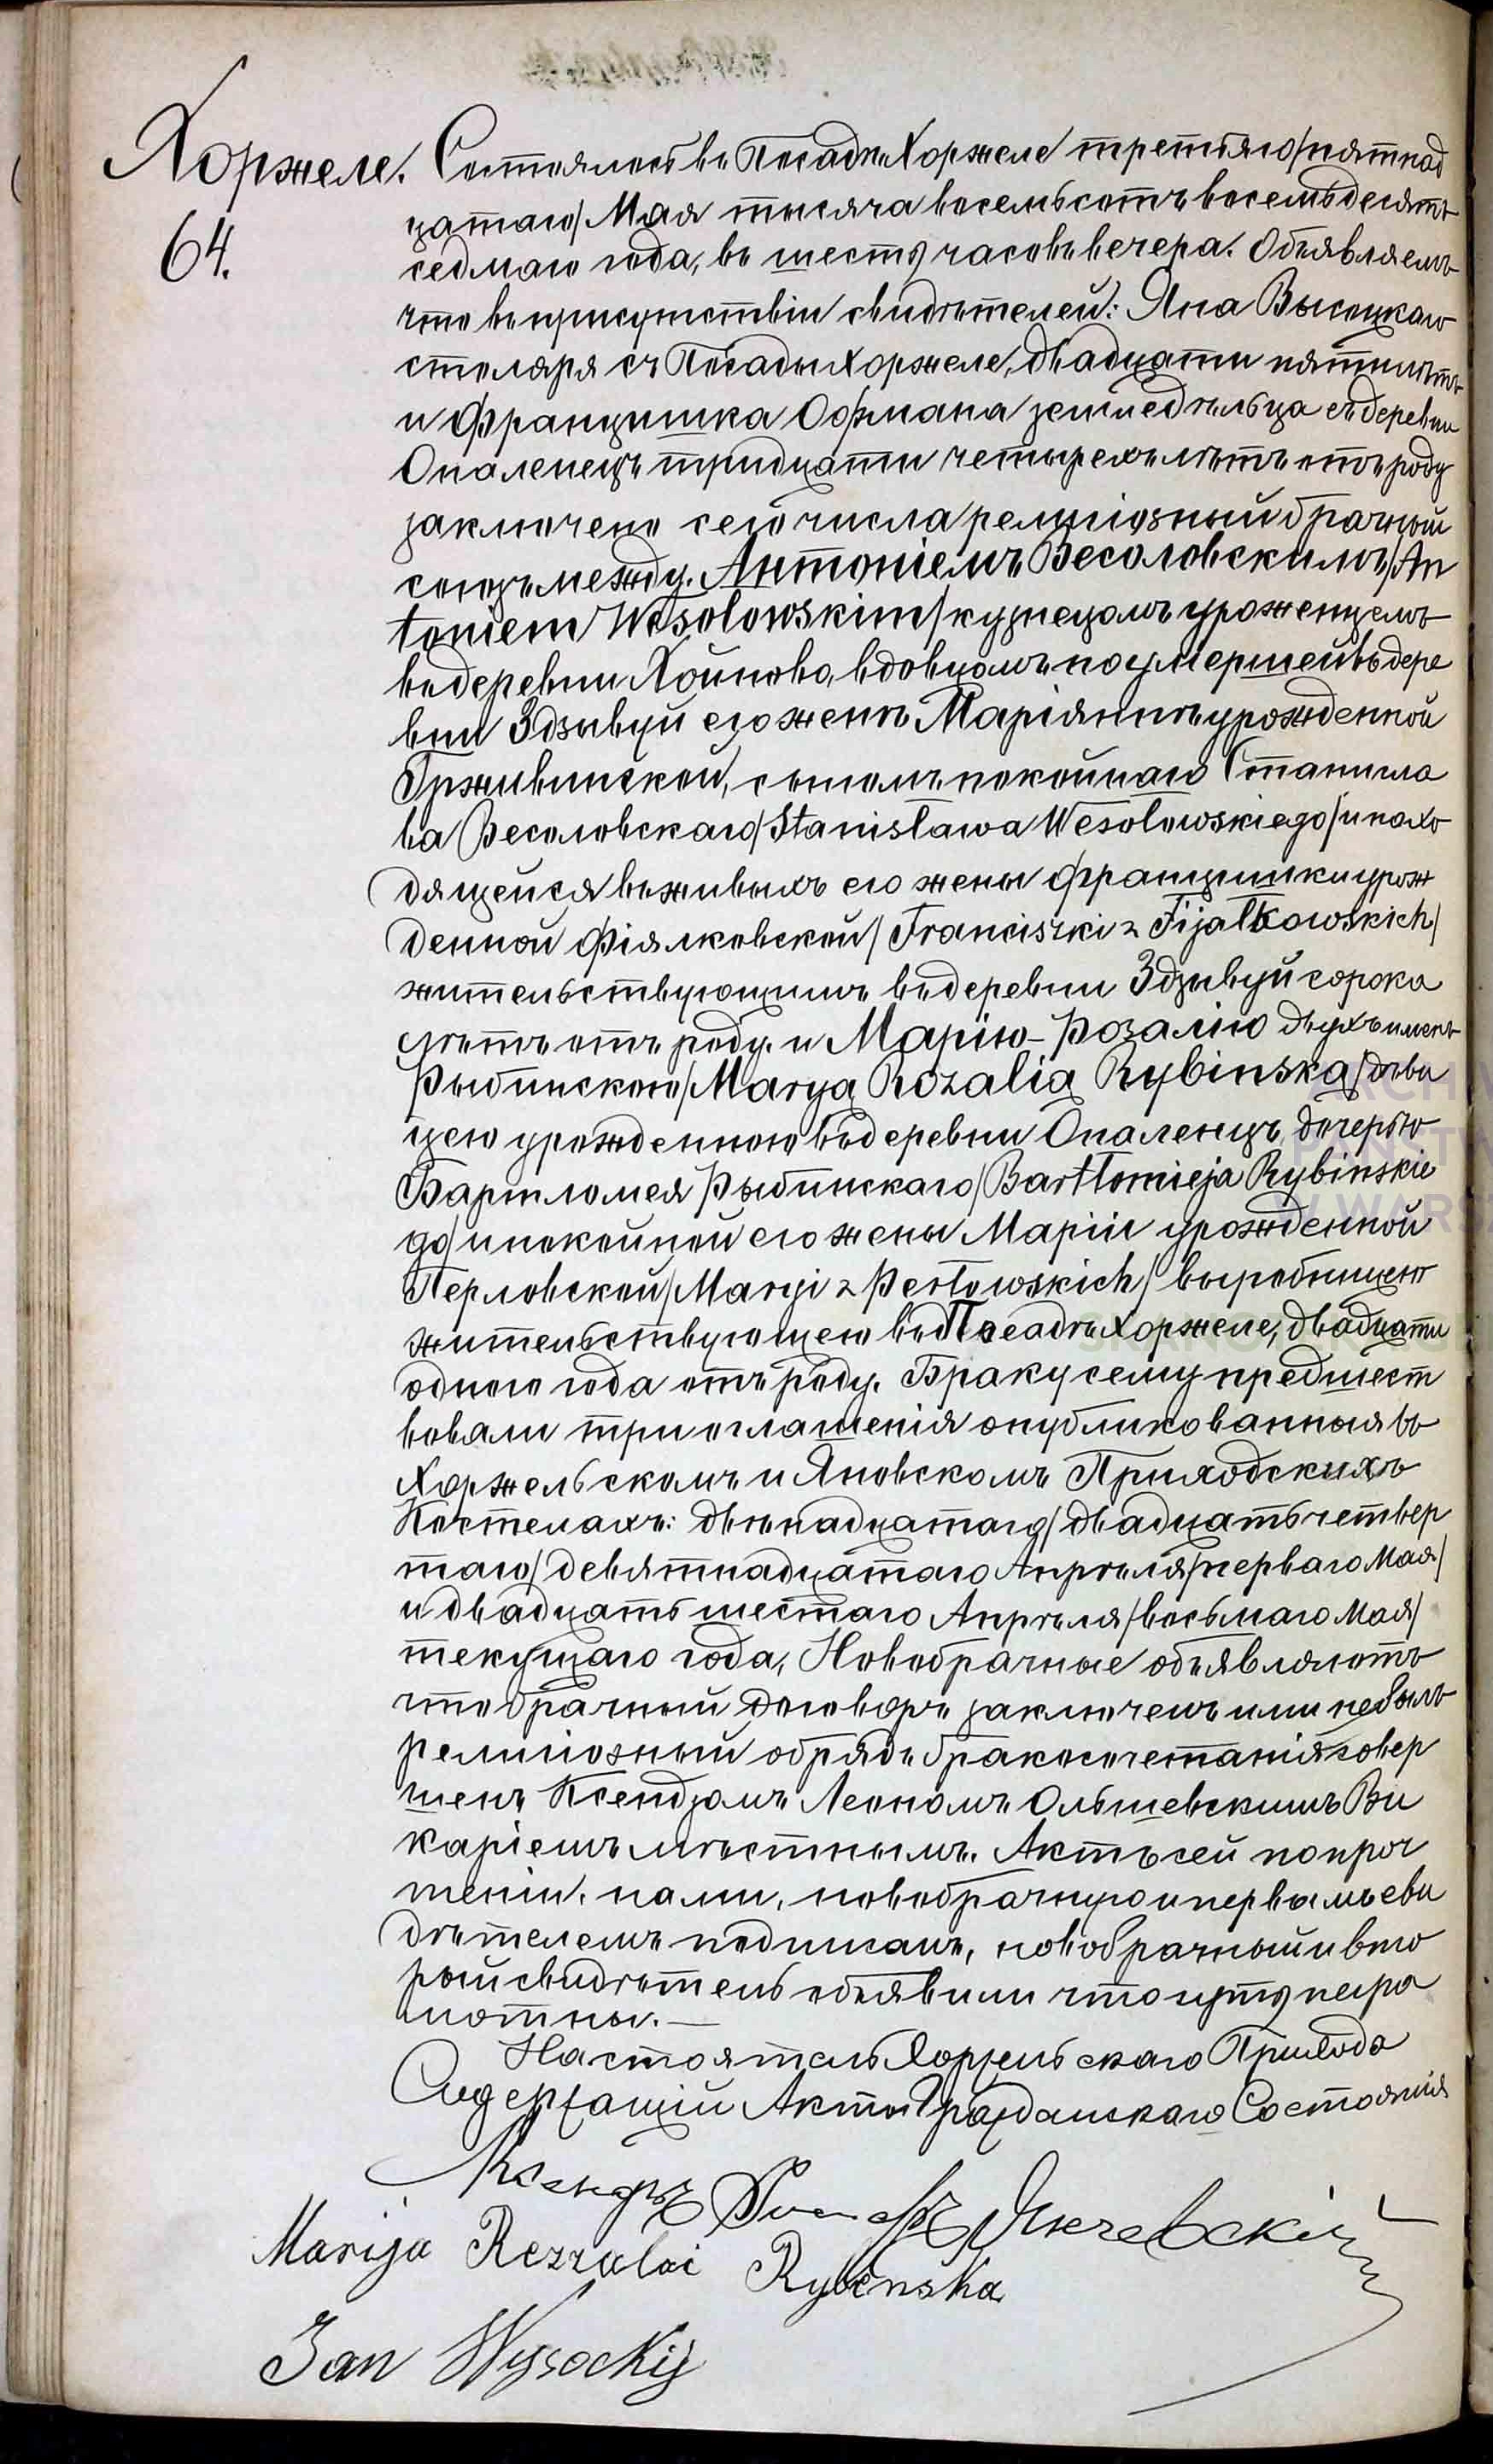 Хоржеле. Состоялось въ Посадѣ Хоржеле третьяго/пятнад
64. цатаго/ Мая тысяча восемьсотъ восемьдесятъ
седмаго года, въ шесть часовъ вечера. Объявляемъ
что въ присутствіи свидѣтелей: Яна Высоцкаго
столяря съ Посады Хоржеле, двадцати пяти лѣтъ
и Францишка Офмана земледѣльца съ деревни
Опаленецъ тридцати четырехъ лѣтъ отъ роду
заключено сего числа религіозный брачный
союзъ между. Антоніемъ Весоловскимъ/An
toniem Wesołowskim/кузнецомъ уроженцемъ
въ деревни Хойново, вдовцомъ по умершей въ дере
вни Здзывуй его женѣ Маріяннѣ урожденной
Грживинской, сыномъ покойнаго Станисла
ва Весоловскаго/Stanisława Wesołowskiego/и нахо
дящейся въ живыхъ его жены Францишки урож
денной Фіялковской/Franciszki z Fijałkowskich/
жительствующимъ въ деревни Здзывуй сорока
лѣтъ отъ роду. и Марію-Розалію двухъ именъ
Рыбинскою/Marya Rozalia Rybinska/дѣви
цею урожденною въ деревни Опаленецъ, дочерью
Бартломея Рыбинскаго/Bartłomieja Rybinskie
go/ и покойной его жены Маріи урожденной
Перловской/Maryi z Perłowskich/ выробницею
жительствующею въ Посадѣ Хоржеле, двадцати
одного года отъ роду. Браку сему предшест
вовали три оглашенія опубликованныя въ
Хоржельскомъ и Яновскомъ Приходскихъ
Костелахъ: двѣнадцатаго/двадцать четвер
таго/ девятнадцатаго Апрѣля/перваго Мая/
и двадцать шестаго Апрѣля/восьмаго Мая/
текущаго года, Новобрачные объявляютъ
что брачный договоръ заключенъ ими не былъ
религіозный обрядъ бракосочетанія совер
шенъ Ксендзомъ Леономъ Ольшевскимъ Ви
каріемъ мѣстнымъ. Актъ сей по проч
теніи. нами, новобрачную и первымъ сви
дѣтелемъ подписанъ, новобрачный и вто
рый свидѣтель объявили что суть негра
мотны.—
Настоятель Хоржельскаго Прихода
Содержащій Акты Гражданскаго Состоянія
Ксендзъ
Marija Rozzalai Rybinska
Jan Wysockij